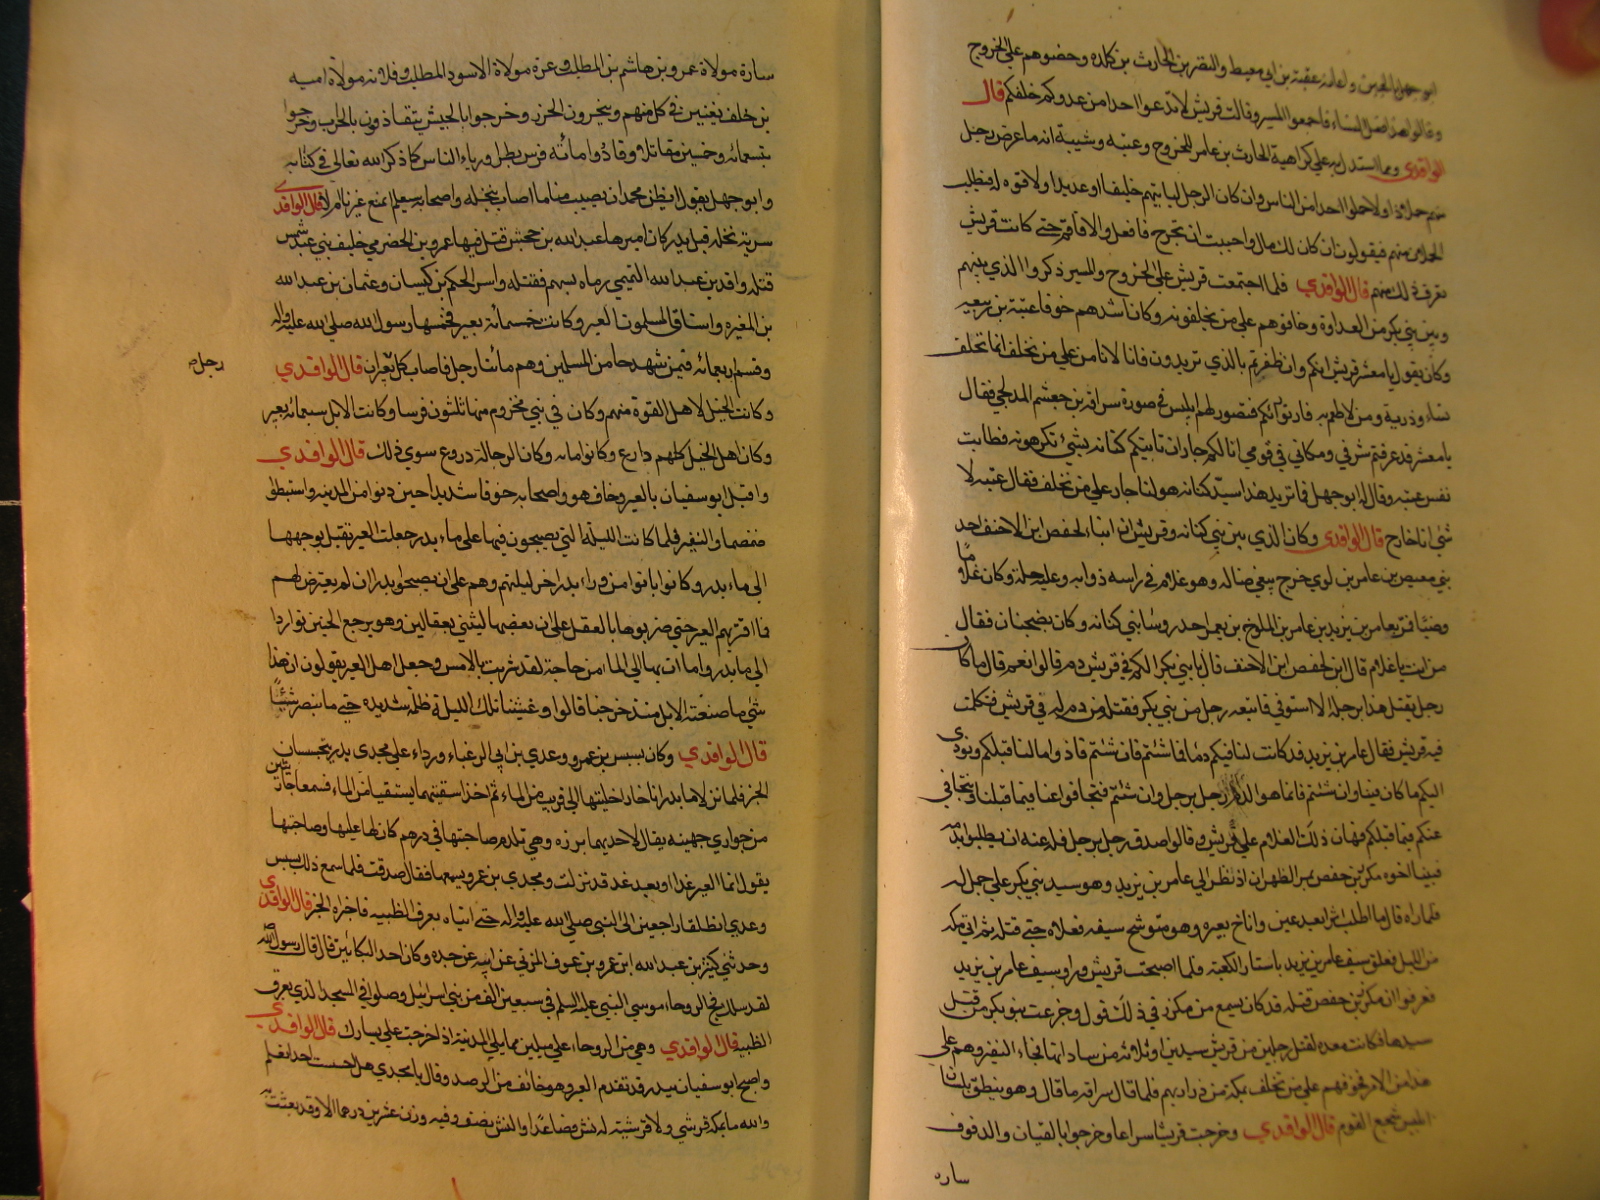 ابو جهل بن عقبة بن ابي معيط والنضر بن الحارث بن كلده وحضوهم علي الخروج
وقالوا هذا فعل النساء فاجمعوا المسير وقالت قريش لا تدعوا احدا من عدوكم خلفكم قال
الواقدي ومما استدل به علي كراهية الحارث بن عامر للخروج وعتبه وشيبة انه ما عرض رجل
منهم حملانا ولا حملوا احدا من الناس وان كان الرجل لياتيهم حليفا او عديدا ولا قوه له فيطلب
الحملان منهم فيقولون ان كان لك مال واحببت ان تخرج فافعل والا فاقم حتي كانت قريش
تعرف ذلك منهم قال الواقدي فلما اجتمعت قريش علي الخروج والمسير ذكروا الذي بينهم
وبين بني بكر من العداوة وخافوهم علي من يخلفونه وكان اشدهم خوفا عتبة بن ربيعه
وكان يقول يا معشر قريش انكم وان ظفرتم بالذي تريدون فانا لا نامن علي من تخلف انما تخلف
نساء وذرية ومن لا طعم به فارتؤا رايكم فتصور لهم ابليس في صورة سراقه بن جعشم المدلجي فقال
يا معشر قد عرفتم شرفي ومكاني في قومي انا لكم جار ان تاتيكم كنانه بشئ تكرهونه فطابت
نفس عتبه وقال له ابو جهل فما تريد هذا سيد كنانه هو لنا جار علي من تخلف فقال عتبه لا
شئ انا خارج قال الواقدي وكان الذي بين بني كنانه وقريش ان ابناء لحفص ابن الاحنف احد
بني معيص بن عامر بن لوي خرج يبغي ضاله وهو غلام في راسه ذوابه وعليه حلة وكان غلاما
وضيئا فمر بعامر بن يزيد بن عامر بن الملوح بن يعمر احد روسا بني كنانه وكان بضجنان فقال
من انت يا غلام قال ابن لحفص ابن الاحنف قال يا بني بكر الكم في قريش دم قالوا نعم قال ما كان
رجل يقتل هذا برجله الا استوفي فاتبعه رجل من بني بكر فقتله بدم له في قريش فتكلمت
فيه قريش فقال عامر بن يزيد قد كانت لنا فيكم دما فما شئتم فان شئتم فادوا ما لنا قبلكم ونودي
اليكم ما كان فينا وان شئتم فانما هو الدم رجل برجل وان شئتم فتجافوا عنا فيما قبلنا ونتجافي
عنكم فيما قبلكم فهان ذلك الغلام علي قريش وقالوا صدق رجل برجل فلهوا عنه ان يطلبوا بدمه
فبينا اخوه مكرز بن حفص بمر الظهران اذ نظر الي عامر بن يزيد وهو سيد بني بكر علي جمل له
فلما راه قال ما اطلب اثرا بعد عين واناخ بعيره وهو متوشح سيفه فعلاه حتي قتله ثم اتي مكه
من الليل فعلق سيف عامر بن يزيد باستار الكعبة فلما اصبحت قريش راوا سيف عامر بن يزيد
فعرفوا ان مكرز بن حفص قتله قد كان يسمع من مكرز في ذلك قول وجزعت بنو بكر من قتل
سيدها فكانت معده لقتل رجلين من قريش سيدين او ثلاثه من ساداتها فجاء النفير وهم علي
هذا من الامر فخوفهم علي من تخلف بمكة من ذراريهم فلما قال سراقه ما قال وهو ينطق بلسان
ابليس شجع القوم قال الواقدي وخرجت قريش سراعا وخرجوا بالقيان والدفوف
ساره
سارة مولاة عمرو بن هاشم بن المطلب وعزه مولاة الاسود المطلب وفلانه مولاة اميه
بن خلف يغنين في كل منهم وينحرون الجزر وخرجوا بالجيش يتقاذفون بالحراب وخرجوا
بتسعمائه وخمسين مقاتلا وقادوا مائه فرس بطرا ورياء الناس كما ذكر الله تعالي في كتابه
وابو جهل يقول ايظن محمد ان يصيب منا ما اصاب بنخله واصحابه سيعلم انمنع عيرنا ام لا قال الواقدي
سرية نخله قبل بدر كان اميرها عبد الله بن جحش قتل فيها عمرو بن الحضرمي حليف بني عبد شمس
قتله واقد بن عبد الله التميمي رماه بسهم فقتله واسر الحكم بن كيسان وعثمان بن عبد الله
بن المغيره واستاق المسلمون العير وكانت خمسمائة بعير فخمسها رسول الله صلي الله عليه واله
وقسم اربعمائه فيمن شهدها من المسلمين وهم مائتا رجل فاصاب كل بعيران قال الواقدي
رجل
وكانت الخيل لاهل القوة منهم وكان في بني مخزوم منها ثلثون فرسا وكانت الابل سبعمائة بعير
وكان اهل الخيل كلهم دارع وكانوا مائه وكان الرجالة دروع سوي ذلك قال الواقدي
واقبل ابو سفيان بالعير وخاف هو واصحابه خوفا شديدا حين دنوا من المدينه واستبطؤا
ضمضما والنفير فلما كانت الليلة التي يصبحون فيها علي ماء بدر جعلت العير تقبل بوجهها
الي ماء بدر وكانوا باتوا من وراء بدر اخر ليلتهم وهم علي ان يصبحوا بدرا ان لم يعترض لهم
فما اقر بهم العير حتي ضربوها بالعقل علي ان بعضها ليثني بعقالين وهو يرجع الحنين تواردا
الي ما بدر وما ان بها الي الما من حاجة لقد شربت بالامس وجعل اهل العير يقولون ان هذا
شئ ما صنعته الابل منذ خرجنا قالوا وغشيتنا تلك الليلة ظلمة شديده حتي ما نبصر شيئا
قال الواقدي وكان بسبس بن عمرو وعدي بن ابي الزغباء وردا علي مجدي بدر يتجسسان
الخبر فلما نزلا ما بدر اناخا راحلتيهما الي قريب من الماء ثم اخذا اسقيتهما يستقيان من الماء فسمعا جاريتين
من جواري جهينه يقال لاحديهما برزه وهي تلزم صاحبتها في درهم كان لها عليها وصاحبتها
يقول انما العير غدا او بعد غد قد نزلت ومجدي بن عمرو يسمعها فقال صدقت فلما سمع ذلك بسبس
وعدي انطلقا راجعين الي النبي صلي الله عليه واله حتي اتياه بعرق الظبيه فاخبراه الخبر قال الواقدي
وحدثني كثير بن عبد الله ابن عمرو بن عوف المزني عن ابيه عن جده وكان احد البكائين قال قال رسول الله
لقد سلك فج الروحاء موسي النبي عليه السلم في سبعين الف من بني اسرائيل وصلوا في المسجد الذي بعرق
الظبيه قال الواقدي وهي من الروحاء علي ميلين مما يلي المدينة اذا خرجت علي يسارك قال الواقدي
واصبح ابو سفيان ببدر قد تقدم العير وهو خائف من الرصد وقال يا مجدي هل احسست احدا تعلم
والله ما بمكة قرشي ولا قرشية له نش فصاعدا والنش نصف وفيه وزن عشرين درهما الا وقد بعثت به